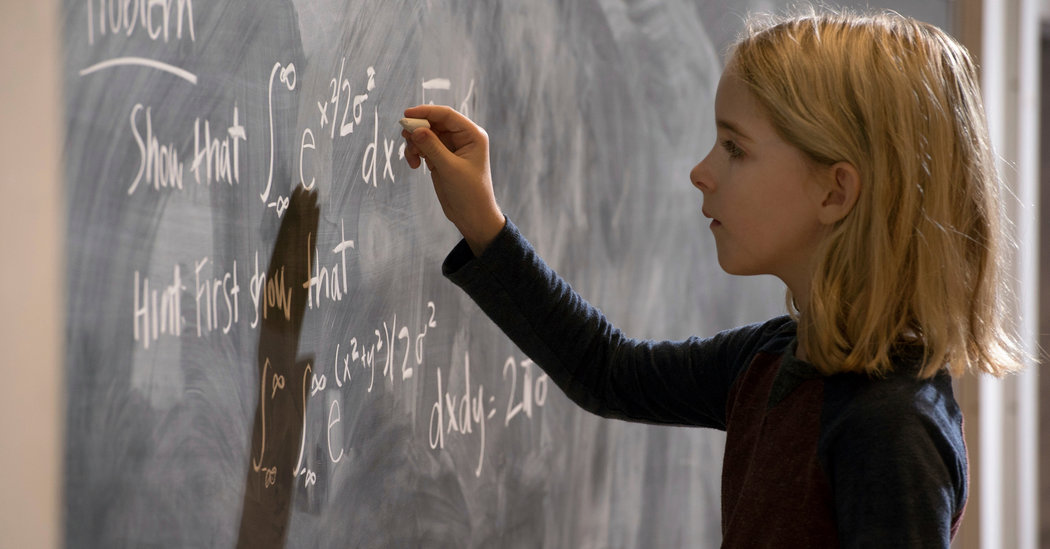 Problem
Show that ∫_{-∞}^{∞} e^{x²/2σ²} dx
Hint: First show that
∫_{-∞}^{∞} ∫_{-∞}^{∞} e^{(x²+y²)/2σ²} dxdy = 2πσ